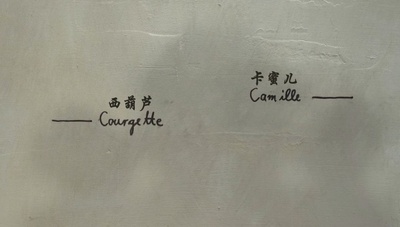 西葫芦
Courgette
卡蜜儿
Camille